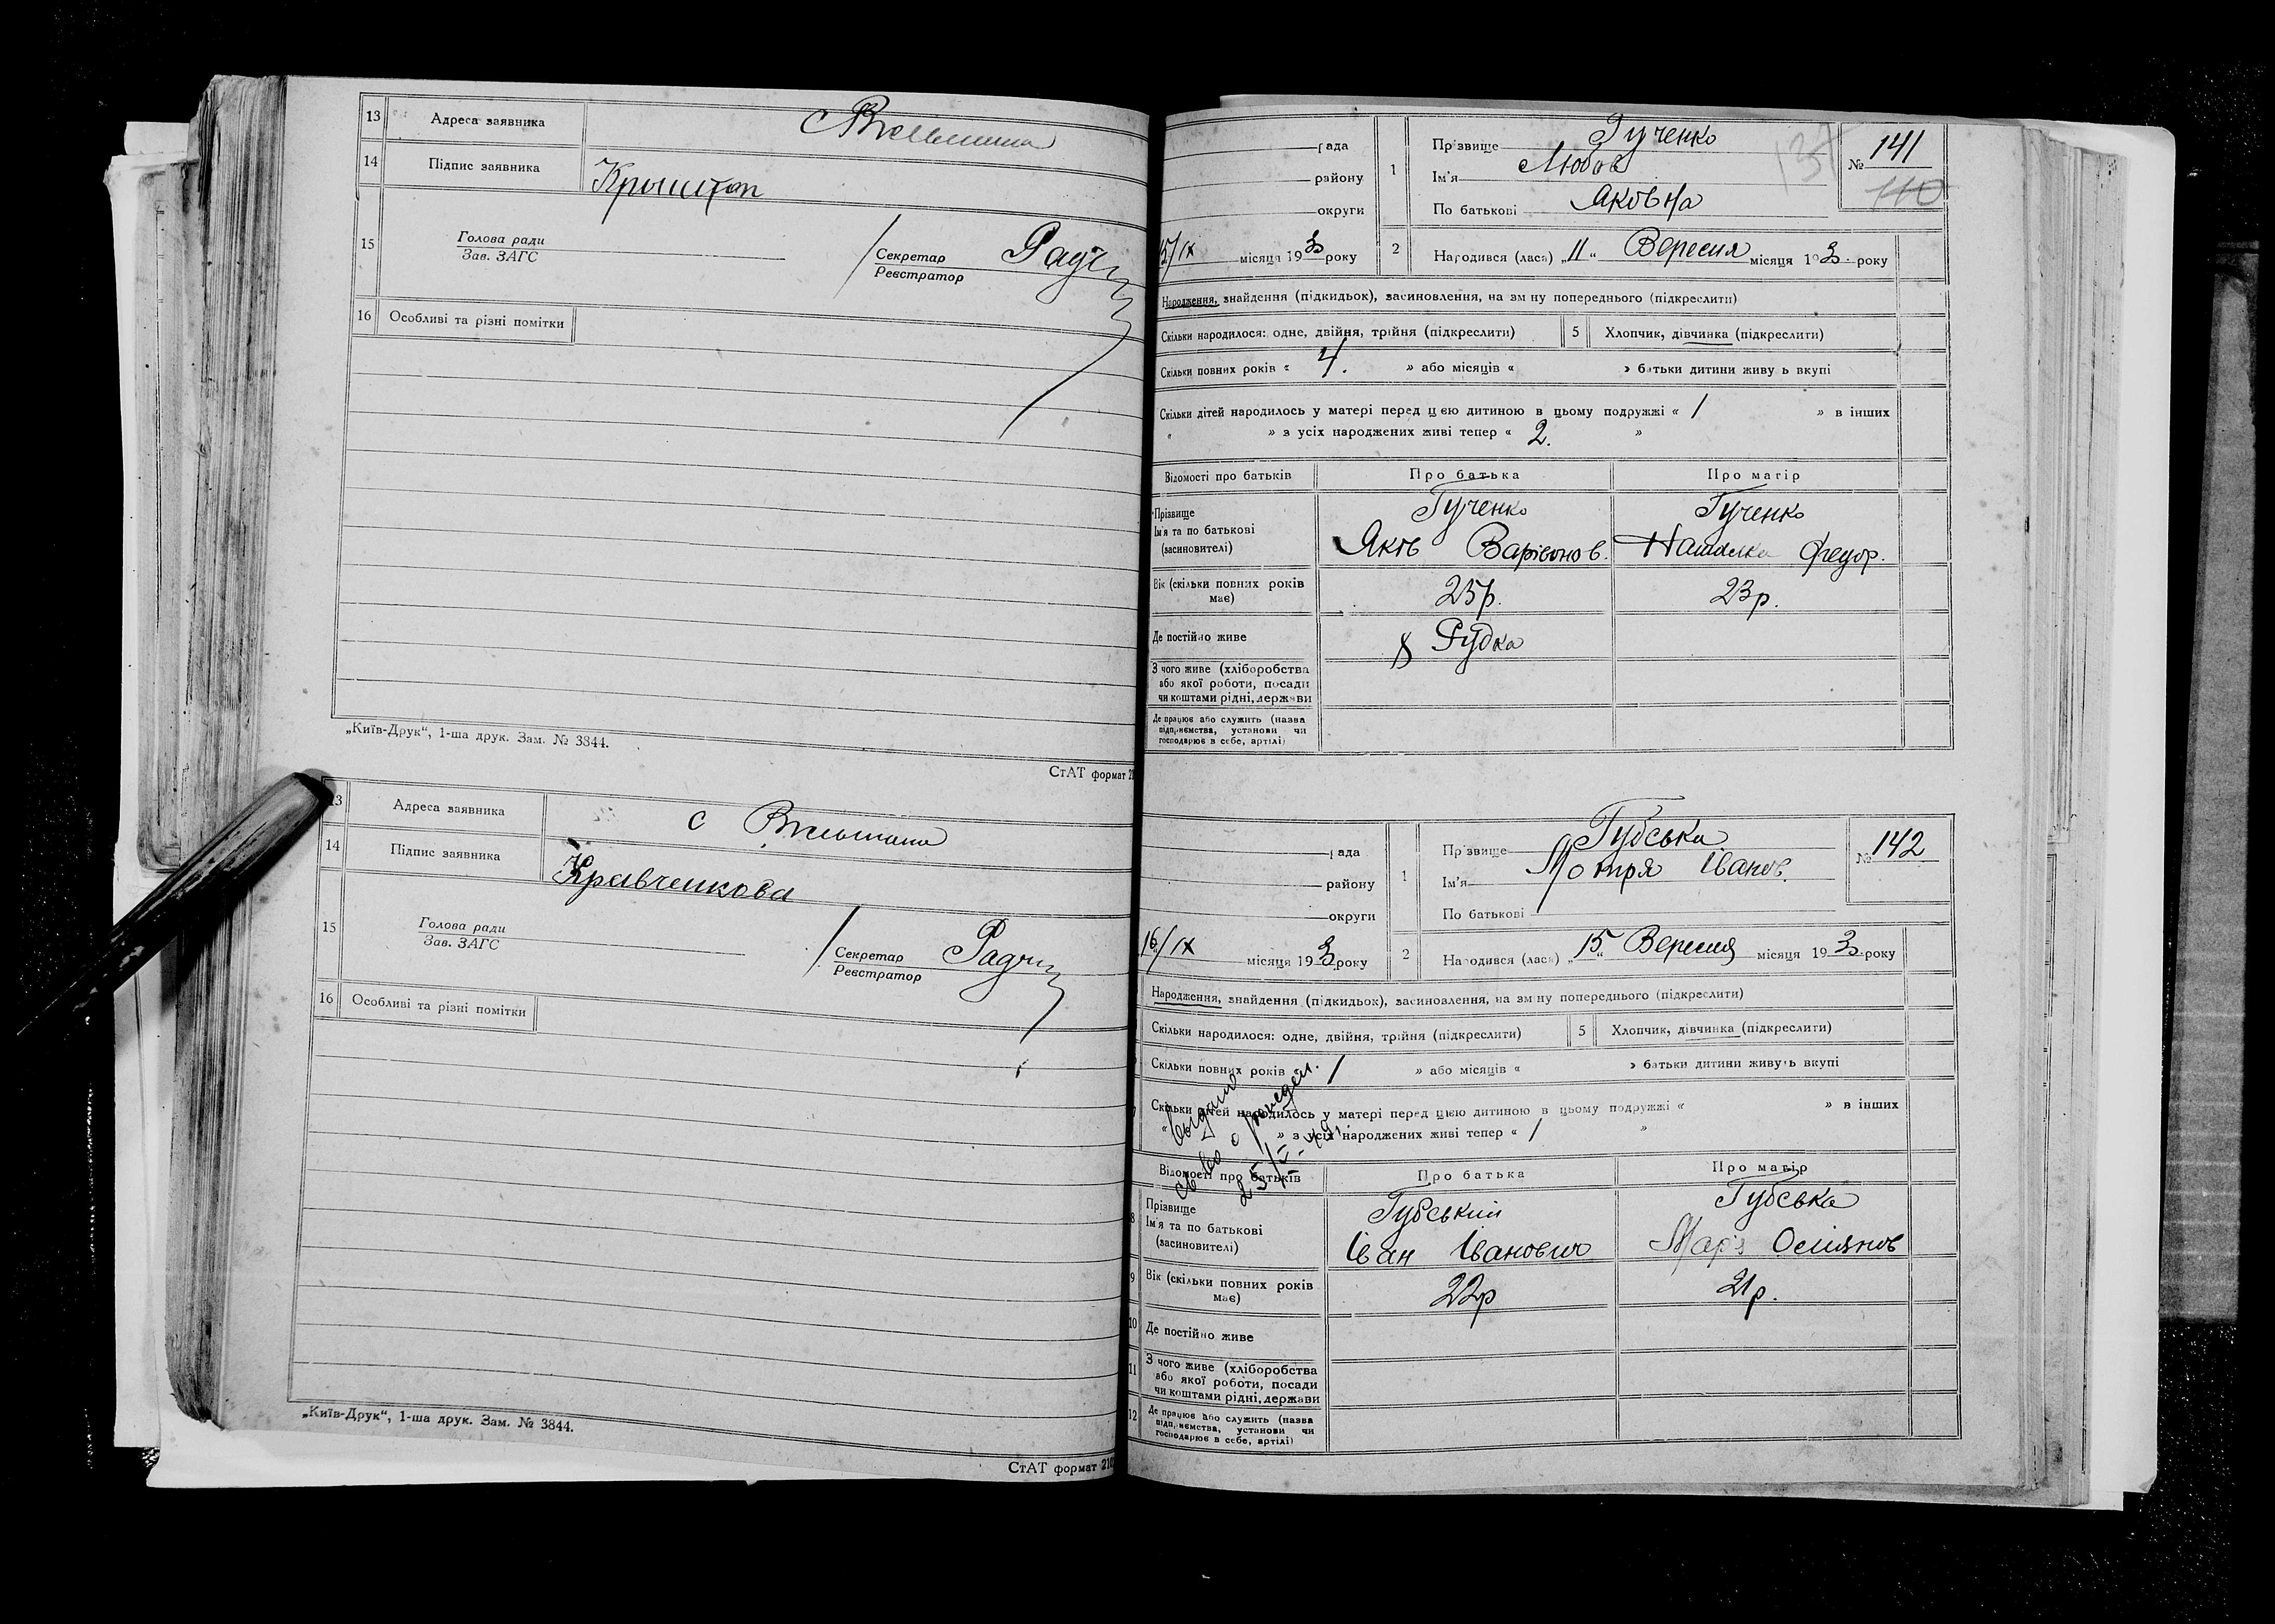 13 Адреса заявника
14 Підпис заявника
15 Голова ради
Зав. ЗАГС
Секретар
Реєстратор
16 Особливі та різні помітки
„Київ-Друк“, 1-ша друк. Зам. № 3844.
СтАТ формат 21
13 Адреса заявника с
14 Підпис заявника Кравченкова
15 Голова ради
Зав. ЗАГС
Секретар
Реєстратор
16 Особливі та різні помітки
„Київ-Друк“, 1-ша друк. Зам. № 3844.
СтАТ формат 210
рада
району
округи
15/IX місяця 193 року
1 Прізвище Гученко
Ім'я Любов
По батькові Яковна
137
№ 141
110
2 Народився (лася) „11“ Вересня місяця 193 року
Народження, знайдення (підкидьок), засиновлення, на зміну попереднього (підкреслити)
Скільки народилося: одне, двійня, трійня (підкреслити) 5 Хлопчик, дівчинка (підкреслити)
Скільки повних років « 4. » або місяців « » батьки дитини живуть вкупі
Скільки дітей народилось у матері перед цією дитиною в цьому подружжі « 1 » в інших
« » з усіх народжених живі тепер « 2. »
Відомості про батьків Про батька Про матір
Прізвище Гученко Гученко
Ім'я та по батькові
(засиновителі) Яків Варівонов. Наталка Федор.
Вік (скільки повних років має) 25р. 23р.
Де постійно живе Рудка
З чого живе (хліборобства
або якої роботи, посади
чи коштами рідні, держави
Де працює або служить (назва
підприємства, установи чи
господарює в себе, артілі)
рада
району
округи
16/IX місяця 193 року
1 Прізвище Губська
Ім'я Мотря Іванов.
По батькові
№ 142
2 Народився (лася) „15“ Вересня місяця 193 року
Народження, знайдення (підкидьок), засиновлення, на зміну попереднього (підкреслити)
Скільки народилося: одне, двійня, трійня (підкреслити) 5 Хлопчик, дівчинка (підкреслити)
Скільки повних років 1 » або місяців « » батьки дитини живуть вкупі
Скільки дітей народилось у матері перед цією дитиною в цьому подружжі « » в інших
« » з усіх народжених живі тепер « 1 »
Выдано
св-во о рожден.
Відомості про батьків Про батька Про матір
8 Прізвище Губський Губська
Ім'я та по батькові
(засиновителі) Іван Іванович Марія
9 Вік (скільки повних років має) 22р 21р.
10 Де постійно живе
11 З чого живе (хліборобства
або якої роботи, посади
чи коштами рідні, держави
12 Де працює або служить (назва
підприємства, установи чи
господарює в себе, артілі)